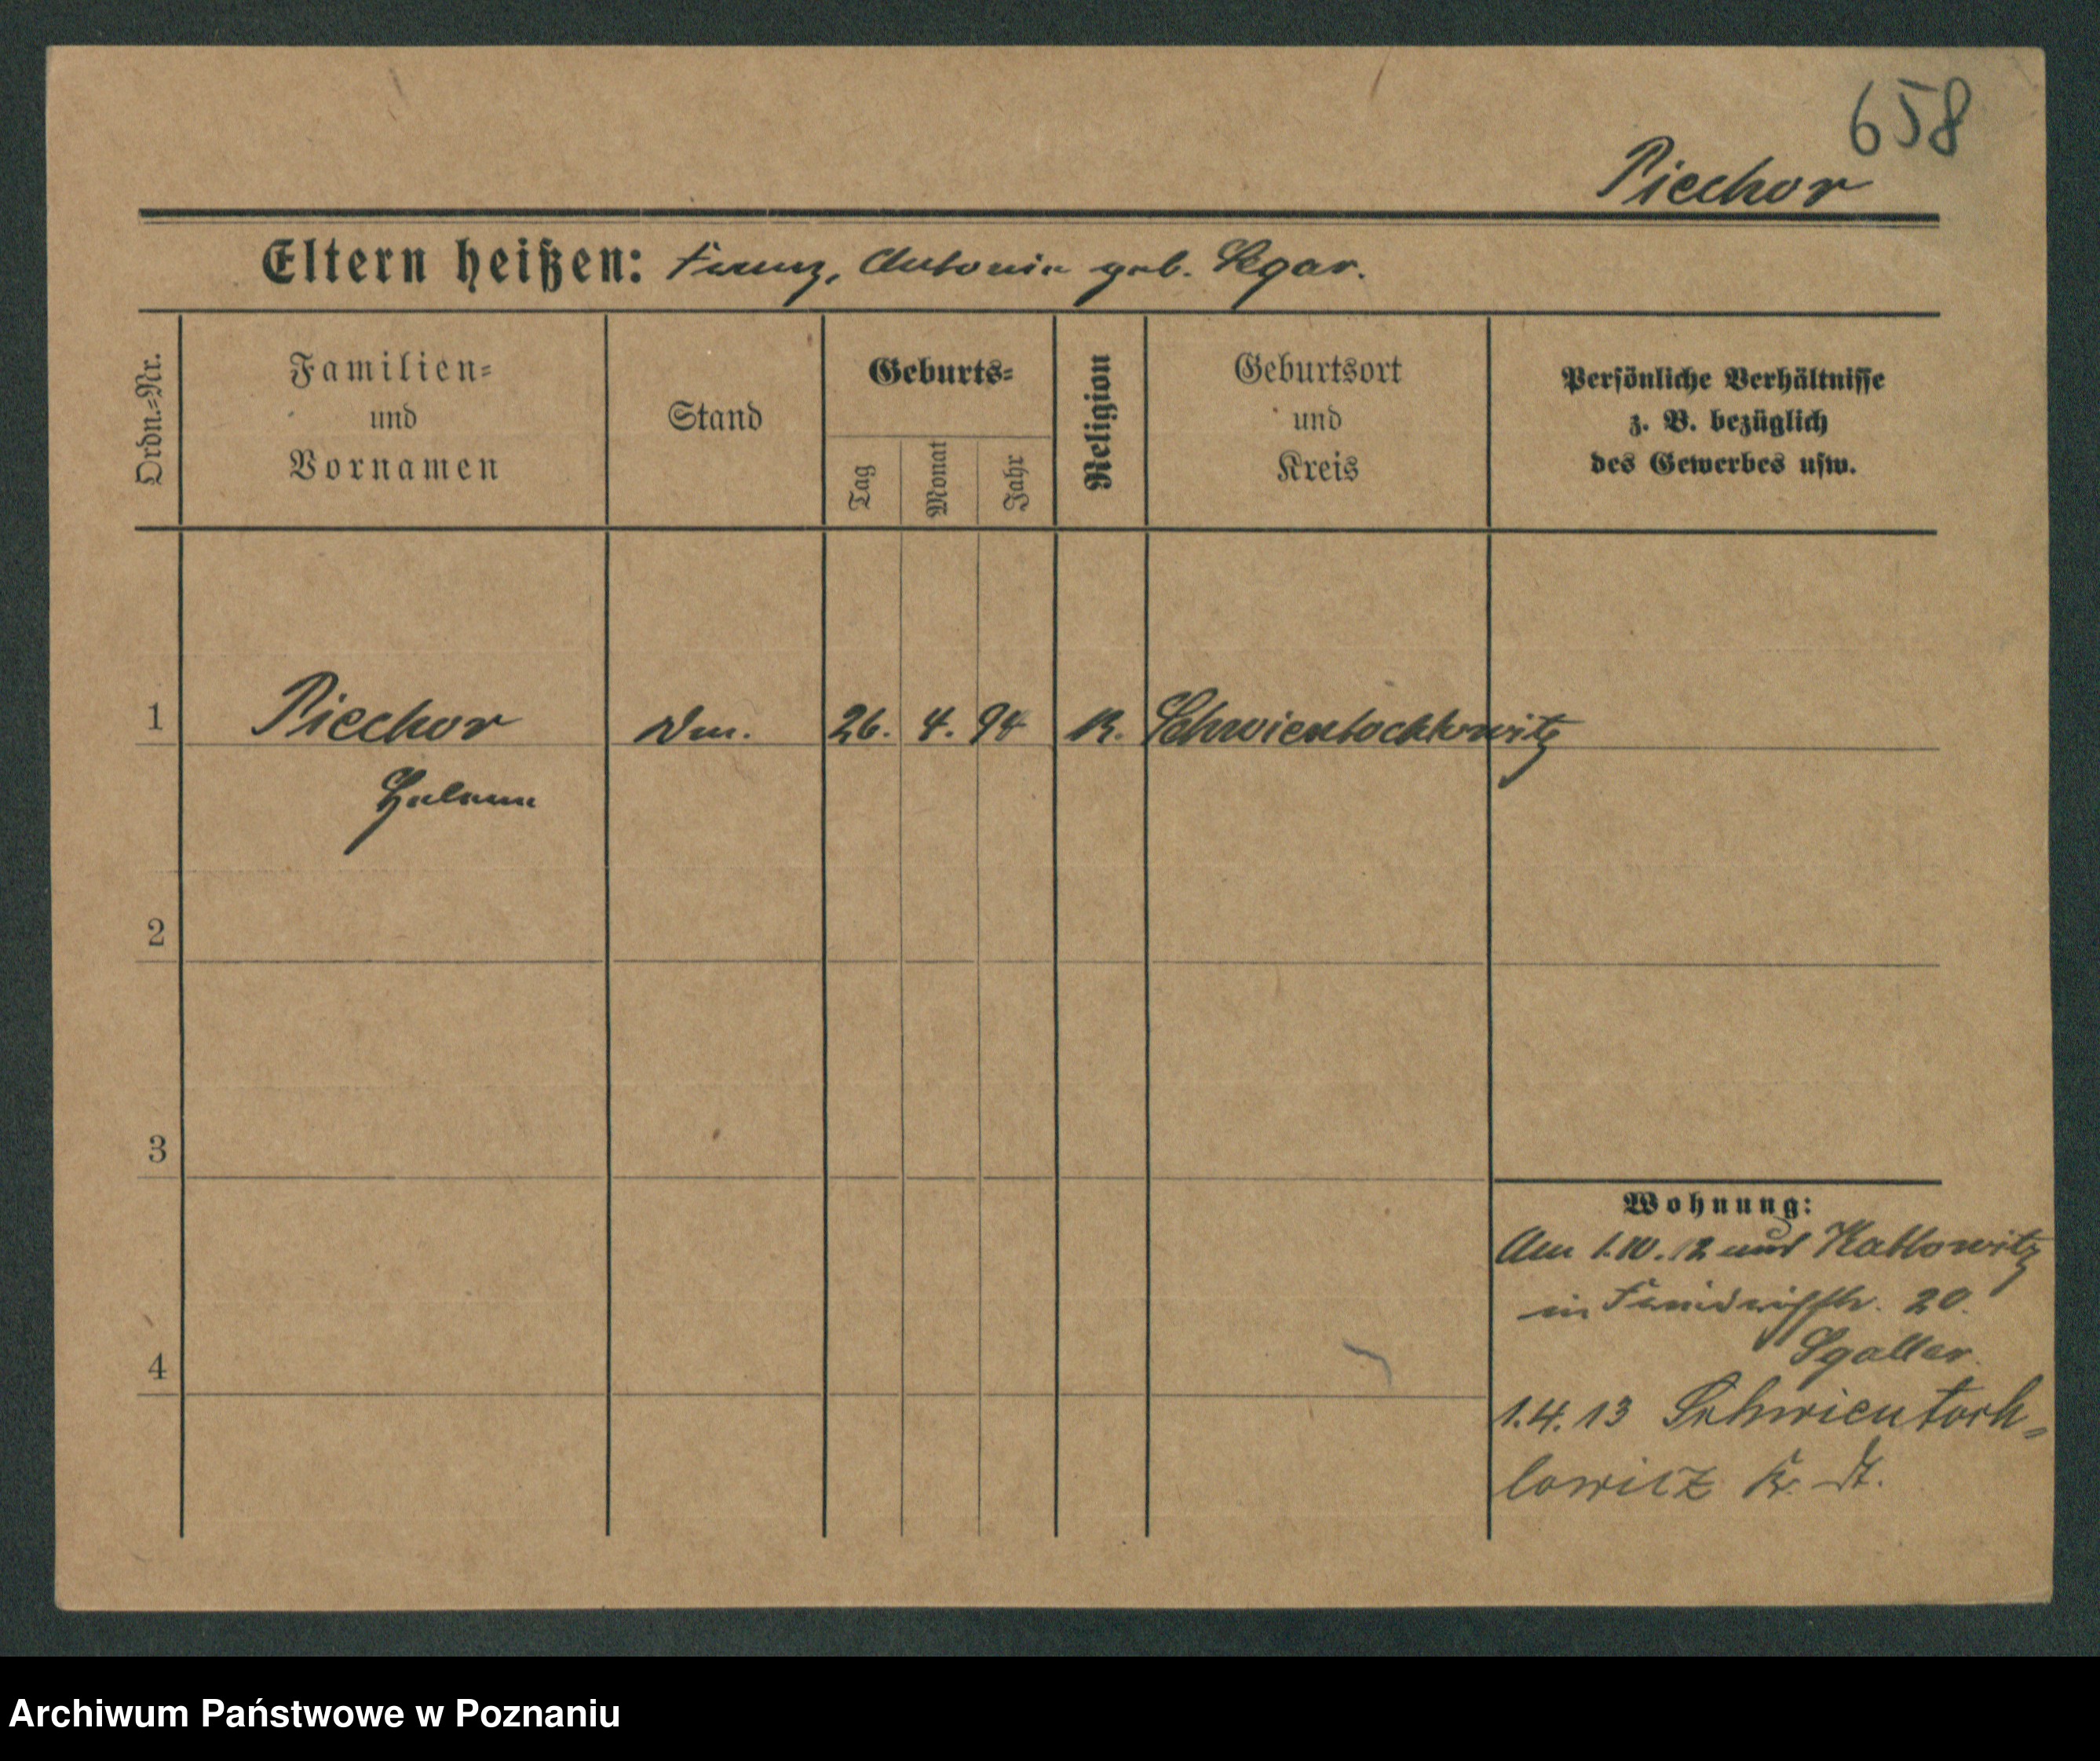 658
Piechor
Eltern heißen: Franz, Antonie geb. Sgar.
Ordn.=Nr.
Familien=
und
Vornamen
Stand
Geburts=
Tag
Monat
Jahr
Religion
Geburtsort
und
Kreis
Persönliche Verhältnisse
z. B. bezüglich
des Gewerbes usw.
1 Piechor 26. 4. 94 K. Schwientochlowitz
Helene
2
3
4
Wohnung:
Am 1.10.12 aus Kattowitz
in 20.
Sgaller.
1.4.13 Schwientoch=
lowitz Kr.
Archiwum Państwowe w Poznaniu